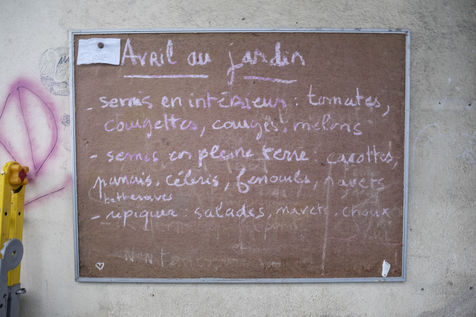 Avril au jardin
- semis en intérieur : tomates,
courgettes, courges, melons
- semis en pleine terre : carottes,
panais, céleris, fenouils, navets
betteraves
- repiquer : salades, navets, choux